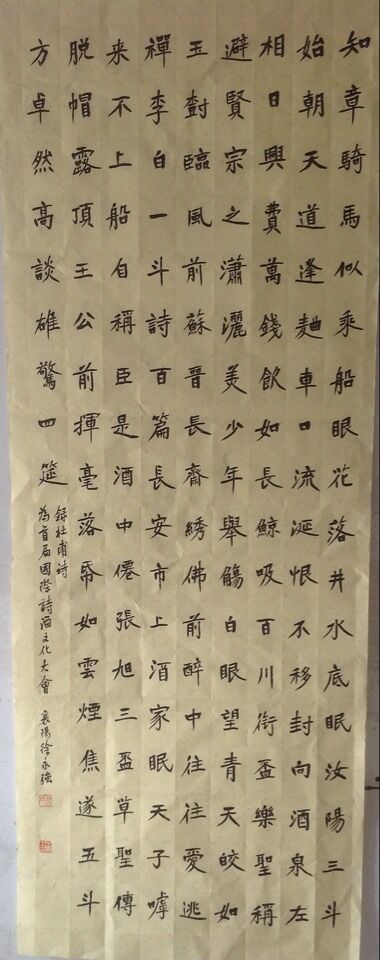 知章騎馬似乘船眼花落井水底眠汝陽三斗
始朝天道逢麯車口流涎恨不移封向酒泉左
相日興費萬錢飲如長鯨吸百川銜盃樂聖稱
避賢宗之瀟灑美少年舉觴白眼望青天皎如
玉樹臨風前蘇晉長齋綉佛前醉中往往愛逃
禪李白一斗詩百篇長安市上酒家眠天子嘑
来不上船自稱臣是酒中僊張旭三盃草聖傳
脱帽露頂王公前揮毫落帋如雲煙焦遂五斗
方卓然高談雄驚四筵
録杜甫詩
為首届國際詩酒文化大會 襄陽徐永強